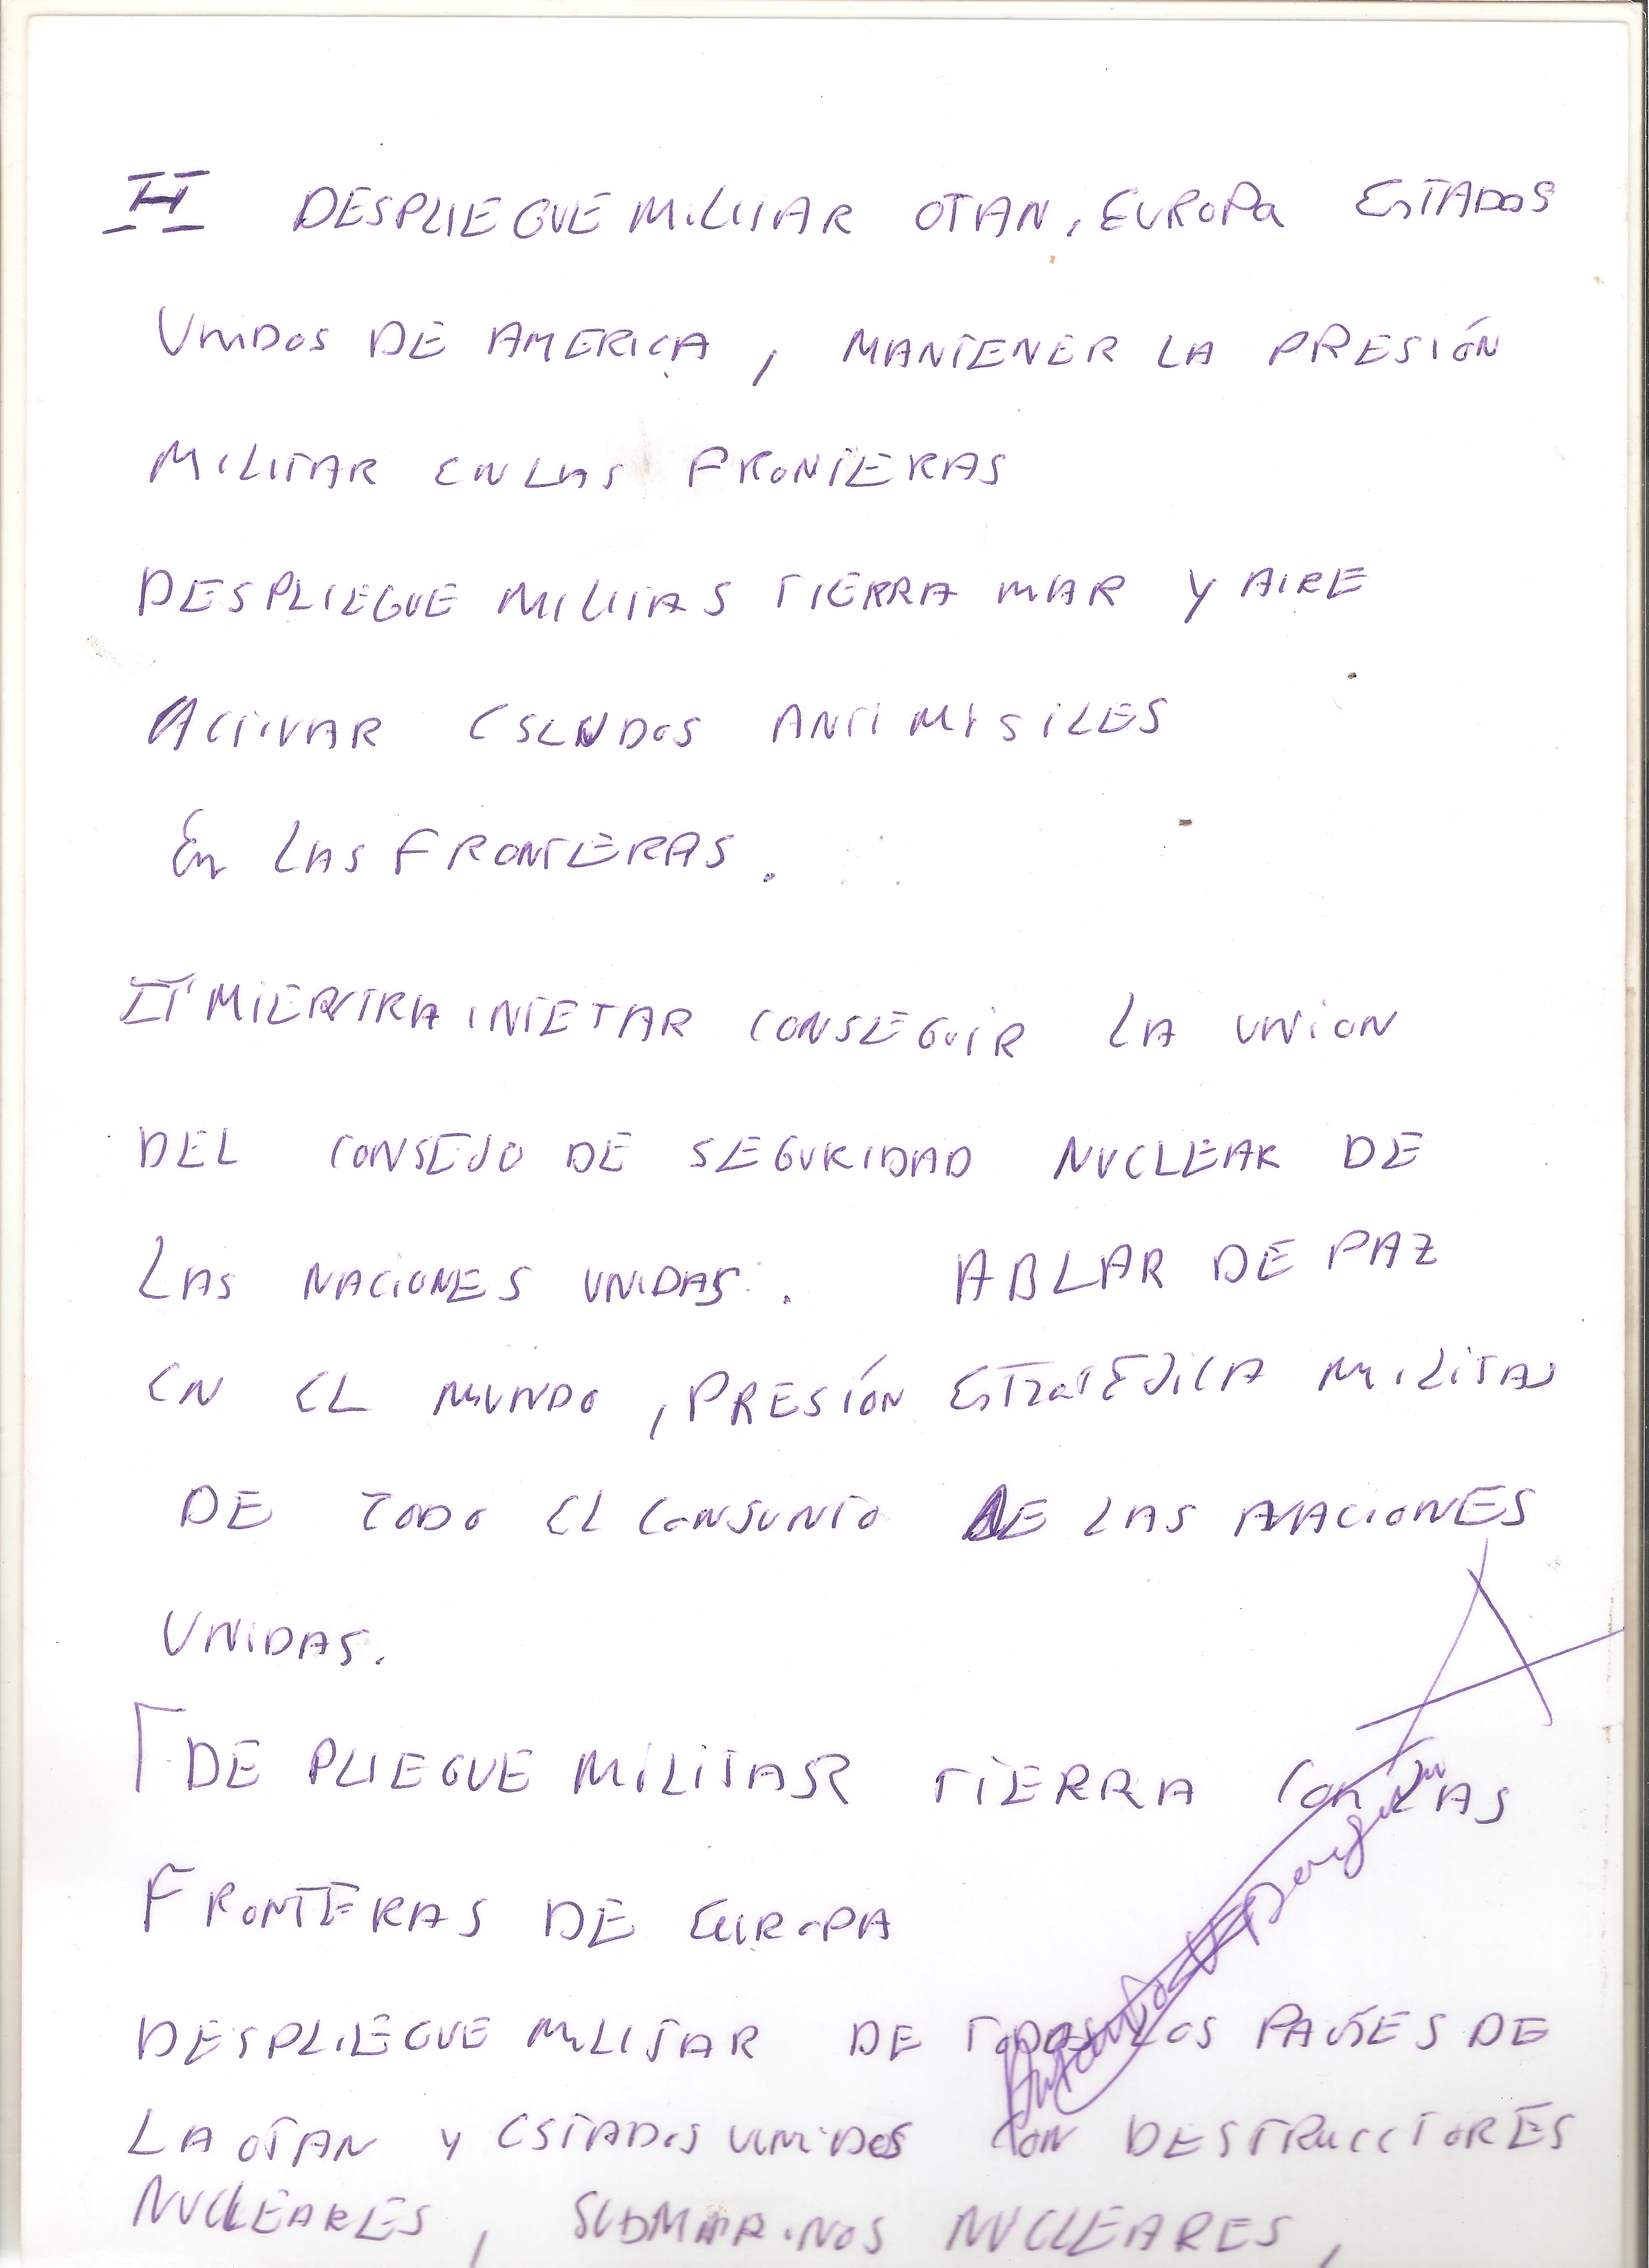 II DESPLIEGUE MILITAR OTAN, EUROPA ESTADOS
UNIDOS DE AMERICA, MANTENER LA PRESIÓN
MILITAR EN LAS FRONTERAS
DESPLIEGUE MILITAS TIERRA MAR Y AIRE
ACTIVAR ESCUDOS ANTIMISILES
EN LAS FRONTERAS.
II MIENTRA INTETAR CONSEGUIR LA UNION
DEL CONSEJO DE SEGURIDAD NUCLEAR DE
LAS NACIONES UNIDAS. ABLAR DE PAZ
EN EL MUNDO, PRESIÓN ESTRATEJICA MILITAR
DE TODO EL CONJUNTO DE LAS NACIONES
UNIDAS.
DE PLIEGUE MILITAR TIERRA CON LAS
FRONTERAS DE EUROPA
DESPLIEGUE MILITAR DE TODOS LOS PAISES DE
LA OTAN Y ESTADOS UNIDOS CON DESTRUCCTORES
NUCLEARES, SUBMARINOS NUCLEARES,